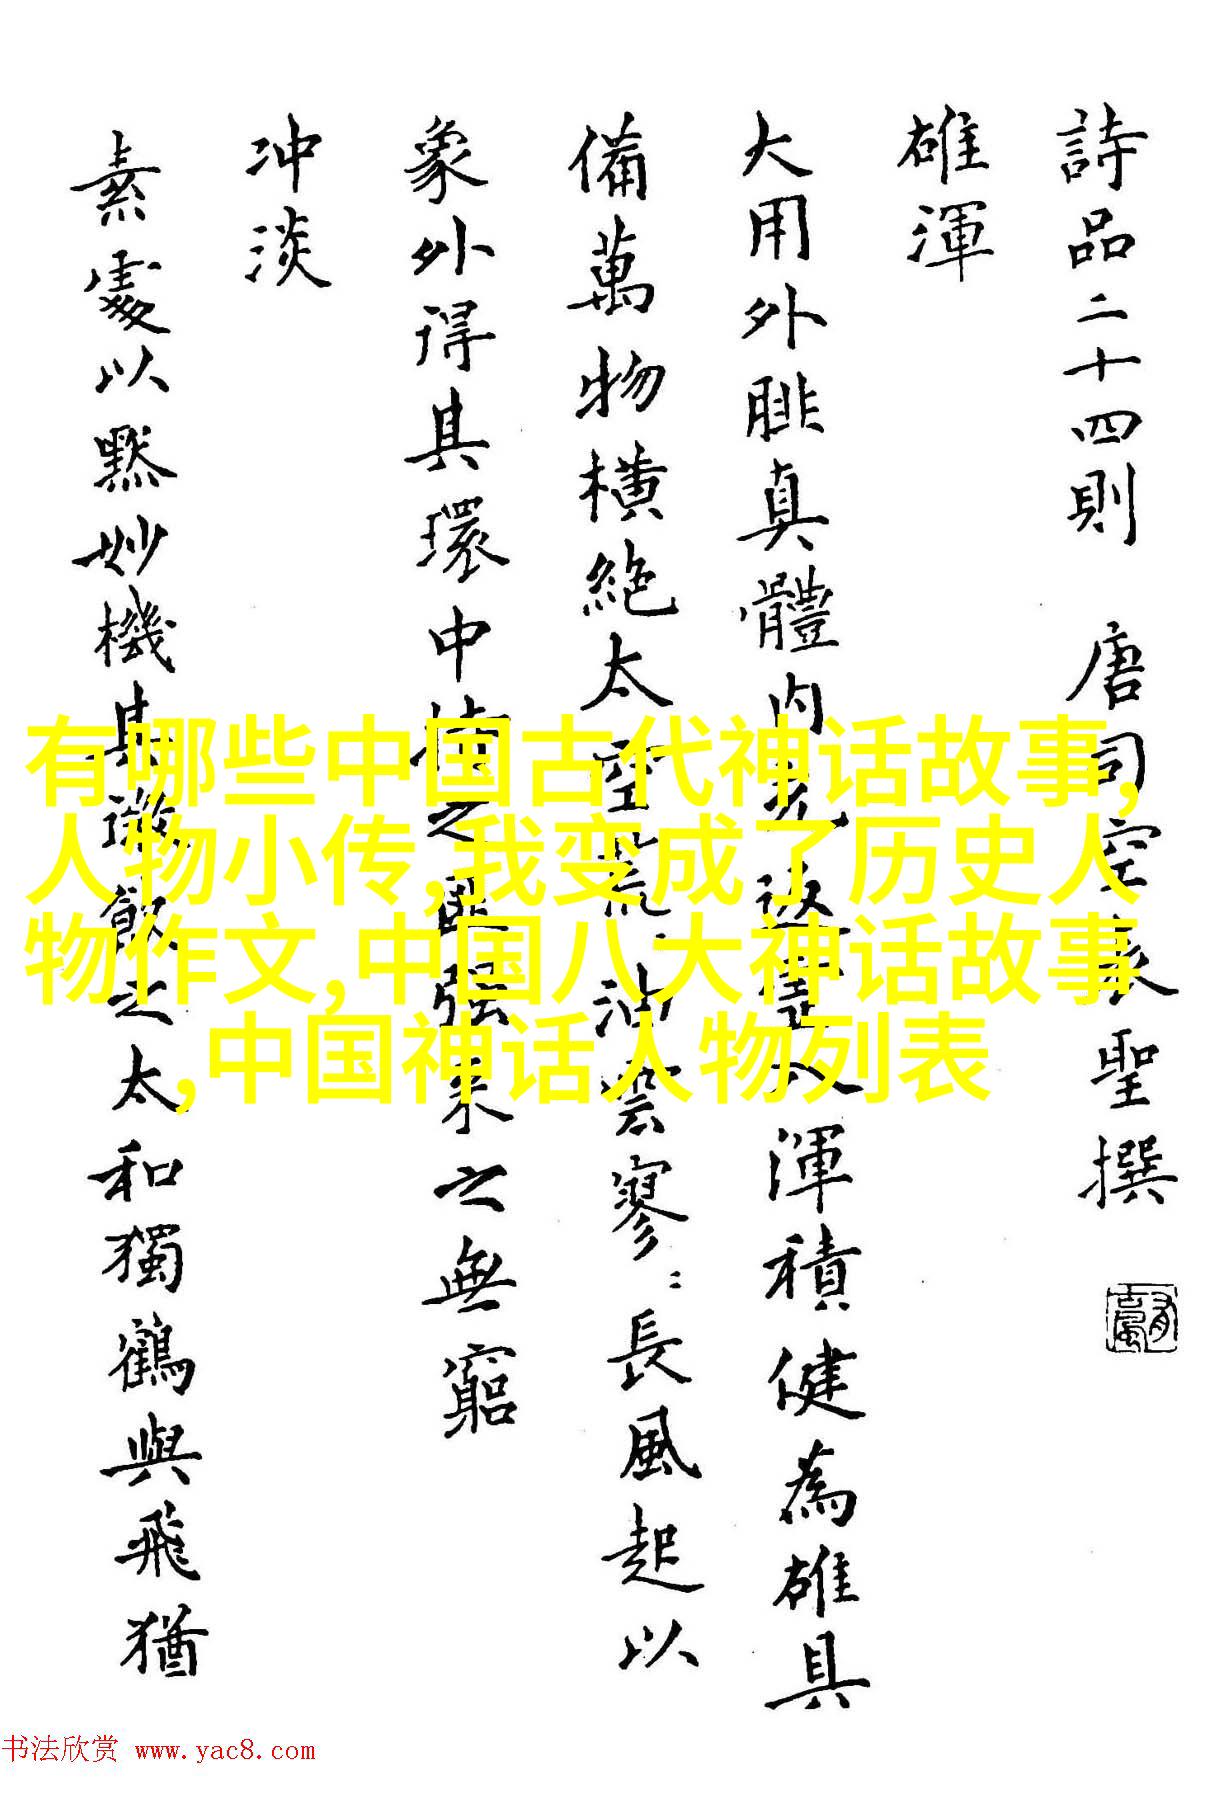 詩品二十四則 唐司空表聖撰
雄渾
大用外腓真體内充返虛入渾積健為雄具
備萬物橫絕太空荒〻油雲寥〻長風起以
象外得其環中持之匪强來之無窮
冲淡
素處以默妙機其微飲之太和獨鶴與飛猶
有哪些中国古代神话故事,
人物小传,我变成了历史人
物作文,中国八大神话故事
,中国神话人物列表
书法欣赏 www.yac8.com